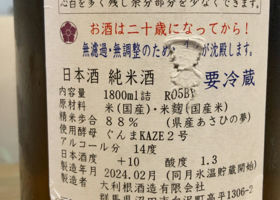 心白を多く残し余分部分を少なくできます。
お酒は二十歳になってから!
無濾過・無調整のため が沈殿します。
日本酒 純米酒 要冷蔵
内容量 1800ml詰 R05BY
原材料 米(国産)・米麹(国産米)
精米歩合 88% (県産あさひの夢)
使用酵母 ぐんまKAZE2号
アルコール分 14度
日本酒度 +10 酸度 1.3
製造年月 2024.02月(同月氷温貯蔵開始)
製造者 大利根酒造有限会社
群馬県沼田市白沢町高平1306-2